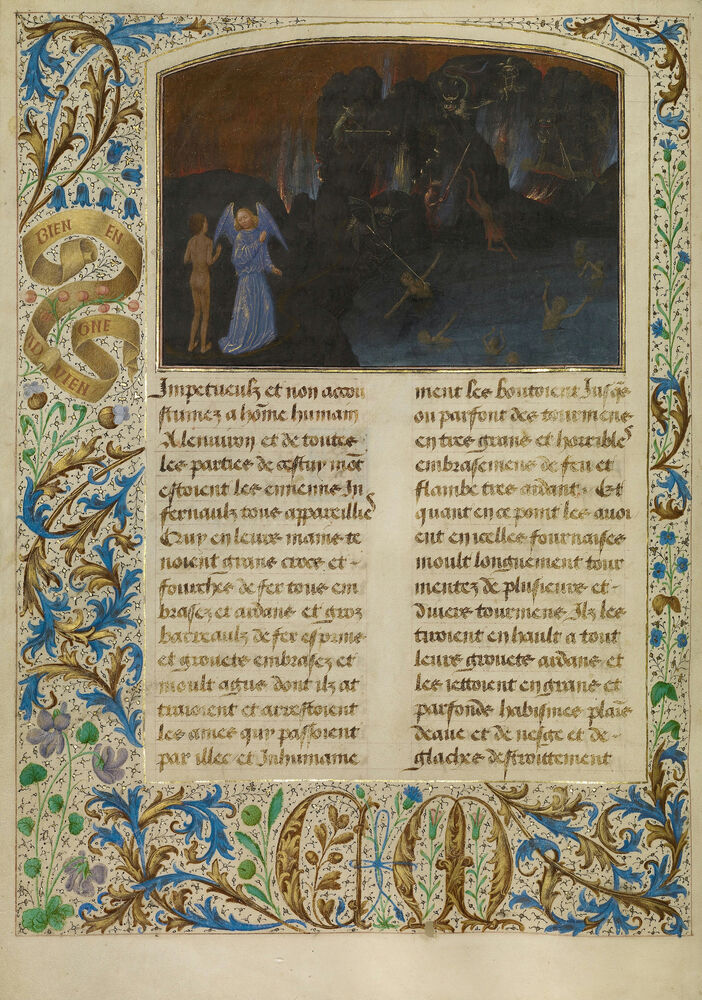 BIEN EN
GNE
AD VIEN
Impetueulx et non accou
stumez a home humain
A lenuiron et de toutes
les parties de cestui mot
estoient les ennemis In
fernaulx tous appareillies
Qui en leurs mains te
noient grans crocs et
fourches de fer tous em
brasez et ardans et gros
barreaulx de fer
et grouetz embrasez et
moult agus dont ilz at
traioient et arrestoient
les ames quy passoient
par illec et Inhumaine
ment les boutoient Jusqs
ou parfont des tourmens
en tres grans et horribles
embrasemens de feu et
flambe tres ardant. Et
quant en ce point les auoi
ent en icelles fournaises
moult longuement tour
mentez de plusieurs et
diuers tourmens Ilz les
tiroient en hault a tout
leurs grouetz ardans et
les iettoient en grans et
parfonds habismes plains
deaue et de neige et de
glaches destroittement
C M